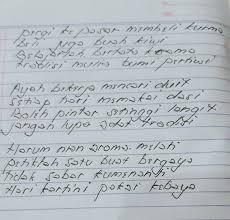 pergi ke pasar membeli kurma
beli juga buah kiwi
bertata krama
tradisi mulia bumi pertiwi
Ayah bekerja mencari duit
Setiap hari memakai dasi
Boleh pintar setinggi langit
jangan lupa adat tradisi
Harum nian aroma melati
petiklah satu buat bergaya
Tidak sabar
Hari kartini pakai kebaya